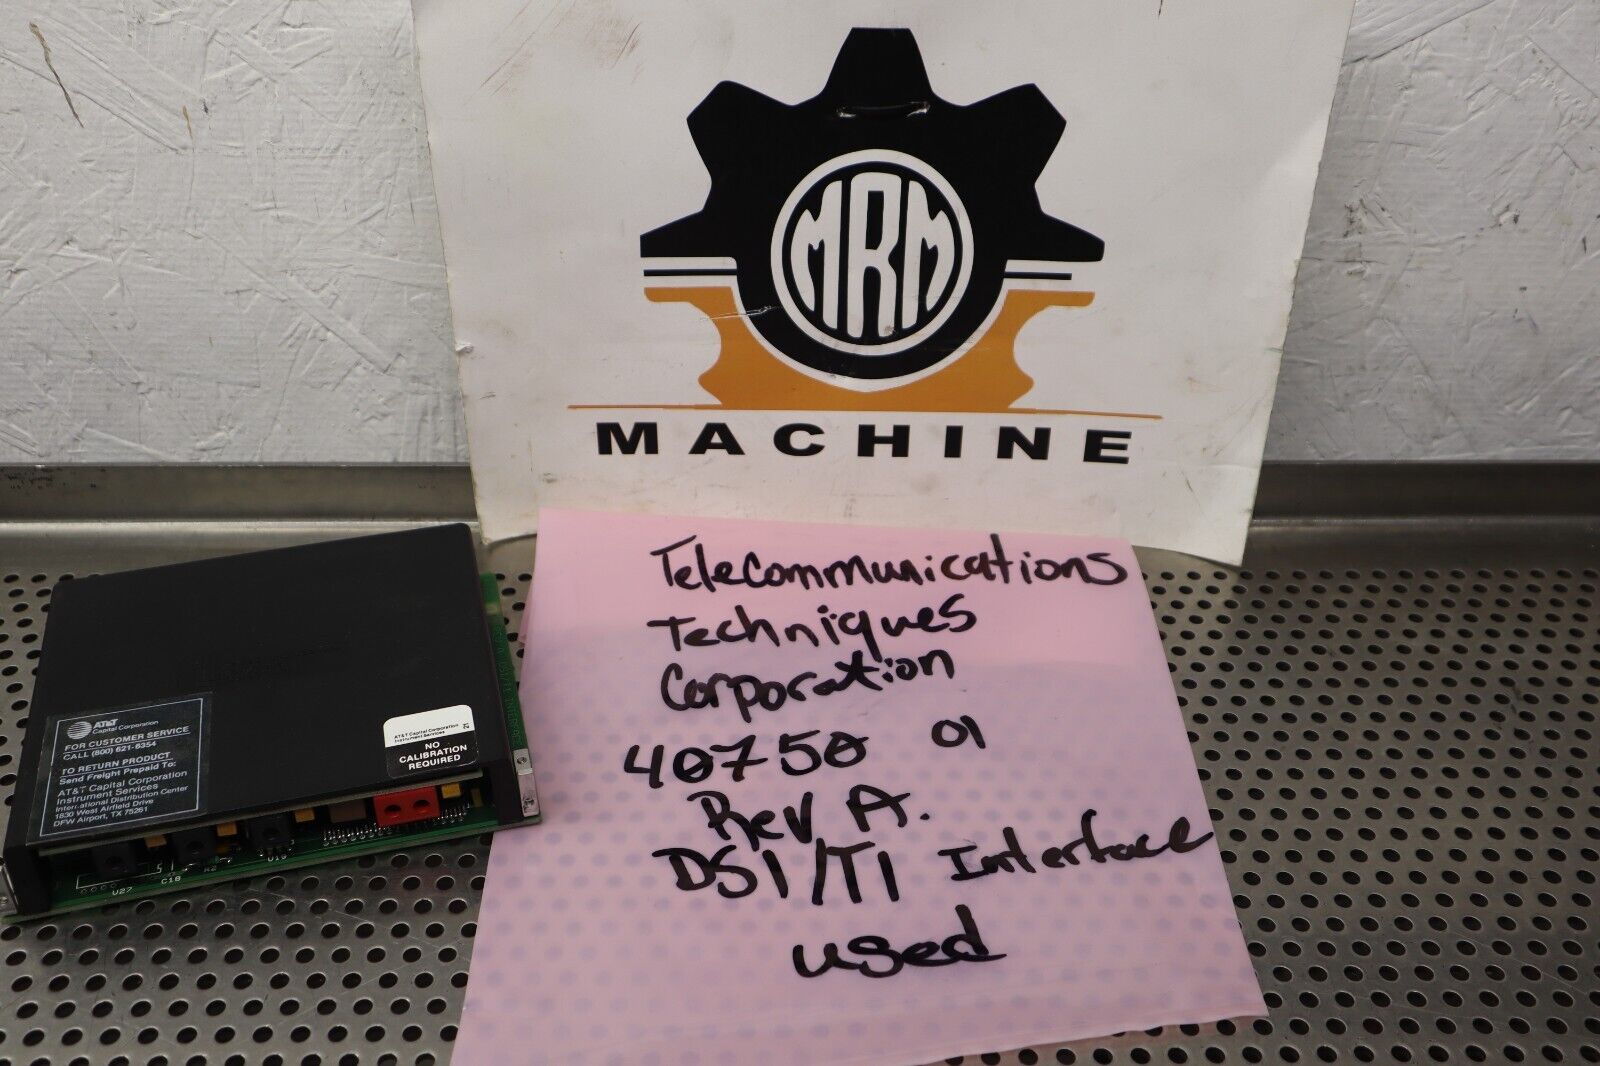 MRM
MACHINE
Telecommunications
Techniques
Corporation
40750 01
Rev A.
DS1/T1 Interface
used
AT&T
Capital Corporation
FOR CUSTOMER SERVICE
CALL (800) 621-6354
TO RETURN PRODUCT
Send Freight Prepaid To:
AT&T Capital Corporation
Instrument Services
International Distribution Center
1830 West Airfield Drive
DFW Airport, TX 75261
AT&T Capital Corporation
Instrument Services
21
NO
CALIBRATION
REQUIRED
U27
C18
R2
U19